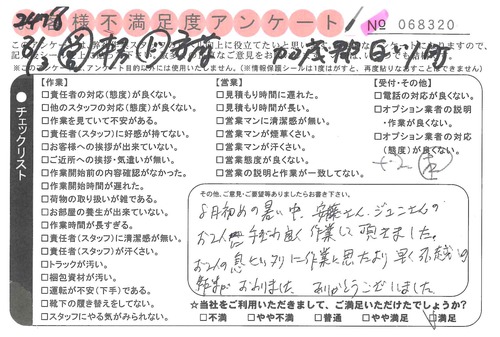 お客様不満足度アンケート
No 068320
チェックリスト
【作業】
□責任者の対応(態度)が良くない。
□他のスタッフの対応(態度)が良くない。
□作業を見ていて不安がある。
□責任者(スタッフ)に好感が持てない。
□お客様への挨拶が出来ていない。
□ご近所への挨拶・気遣いが無い。
□作業開始前の内容確認がなかった。
□作業開始時間が遅れた。
□荷物の取り扱いが雑である。
□お部屋の養生が出来ていない。
□作業時間が長すぎる。
□責任者(スタッフ)に清潔感が無い。
□責任者(スタッフ)が汗くさい。
□トラックが汚い。
□梱包資材が汚い。
□運転が不安(下手)である。
□靴下の履き替えをしてない。
□スタッフにやる気がみられない。
【営業】
□見積もり時間に遅れた。
□見積もり時間が長い。
□営業マンに清潔感が無い。
□営業マンが煙草くさい。
□営業マンが汗くさい。
□営業態度が良くない。
□営業の説明と作業が一致してない。
【受付・その他】
□電話の対応が良くない。
□オプション業者の説明
・作業が良くない。
□オプション業者の対応
(態度)が良くない。
その他、ご意見・ご要望等ありましたらお書き下さい。
8月初めの暑い中、安藤さん、ジュニさんの
お2人 手ぎわ良く作業して頂きました。
お2人の息ピッタリに作業と思たより早く
作業が おわりました ありがとうございました
☆当社をご利用いただきまして、ご満足いただけたでしょうか?
□不満 □やや不満 □普通 □やや満足 □満足